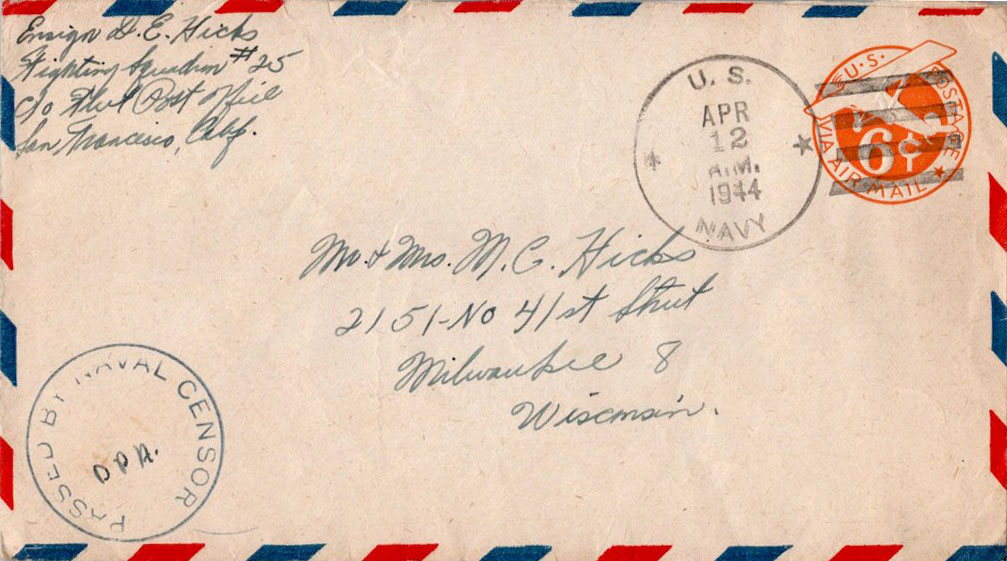 Ensign D. E. Hicks
Fighting Squadron #25
c/o Fleet Post Office
San Francisco, Calif.
U. S.
APR
12
A.M.
1944
NAVY
U.S. POSTAGE
6¢
VIA AIR MAIL
Mr. & Mrs. M. C. Hicks
2151-No 41st Street
Milwaukee 8
Wisconsin.
PASSED BY NAVAL CENSOR